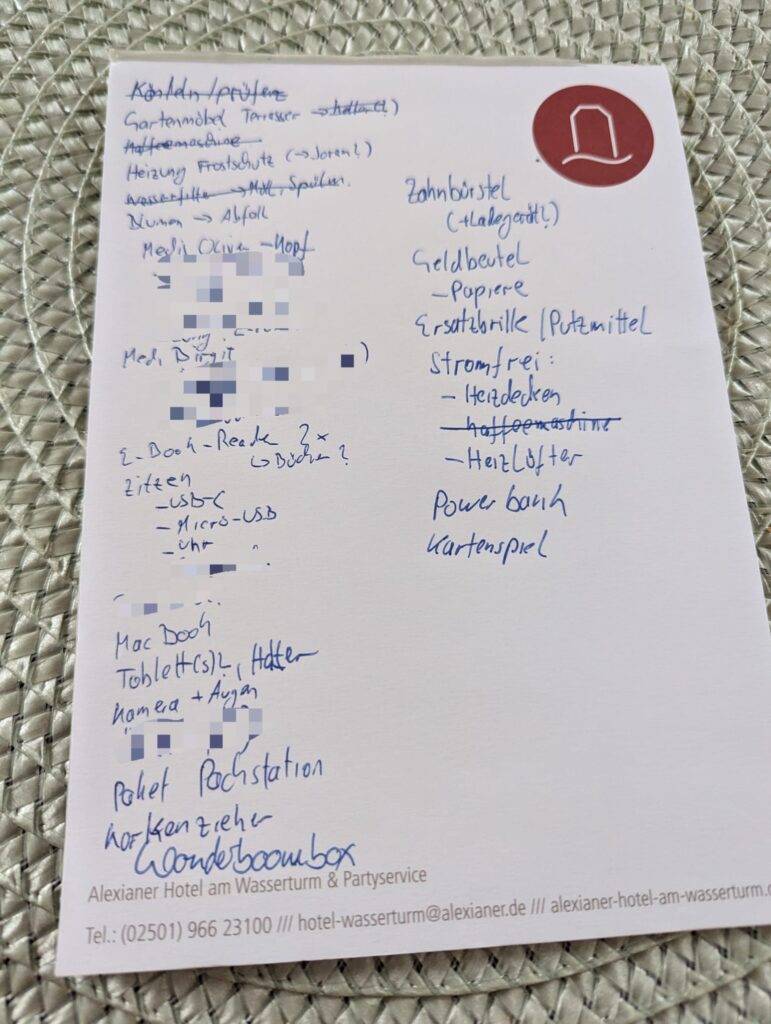 Gartenmöbel Terrasse
Kaffeemaschine
Heizung Frostschutz (→ Joran?)
→ Müll, Spülm.
→ Abfall
Medis Oliver - Kopf
Medi Birgit
)
E-Book-Reader 2x
↳ Bücher?
- USB-C
- Micro-USB
- Uhr
MacBook
Tablett(s)?, Halter
Kamera + Augen
Paket Packstation
Korkenzieher
Wonderboombox
Zahnbürstel
(+Ladegerät?)
Geldbeutel
- Papiere
Ersatzbrille / Putzmittel
Stromfrei:
- Heizdecken
- Kaffeemaschine
- Heizlüfter
Powerbank
Kartenspiel
Alexianer Hotel am Wasserturm & Partyservice
Tel.: (02501) 966 23100 /// hotel-wasserturm@alexianer.de /// alexianer-hotel-am-wasserturm.